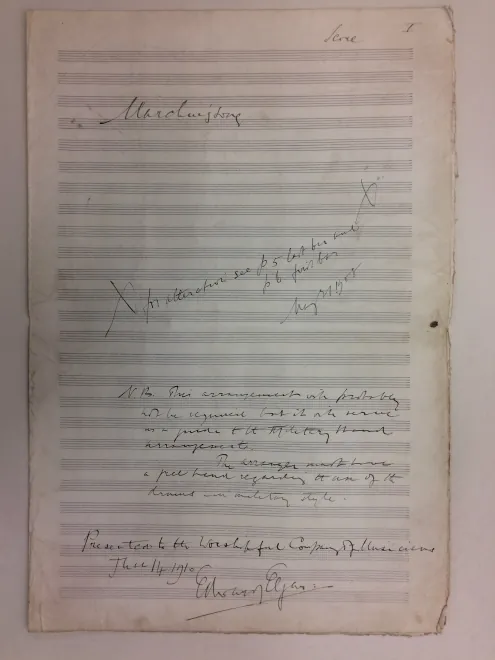 Score I
Marching Song
X for alteration see p 5 last bar and X
p 6 first bar
May 1908
N.B. This arrangement will probably
not be required but it will serve
as a guide to the Military Band
arrangement.
The arranger must have
a free hand regarding the use of the
drums in military style.
Presented to the Worshipful Company of Musicians
June 14 1910
Edward Elgar